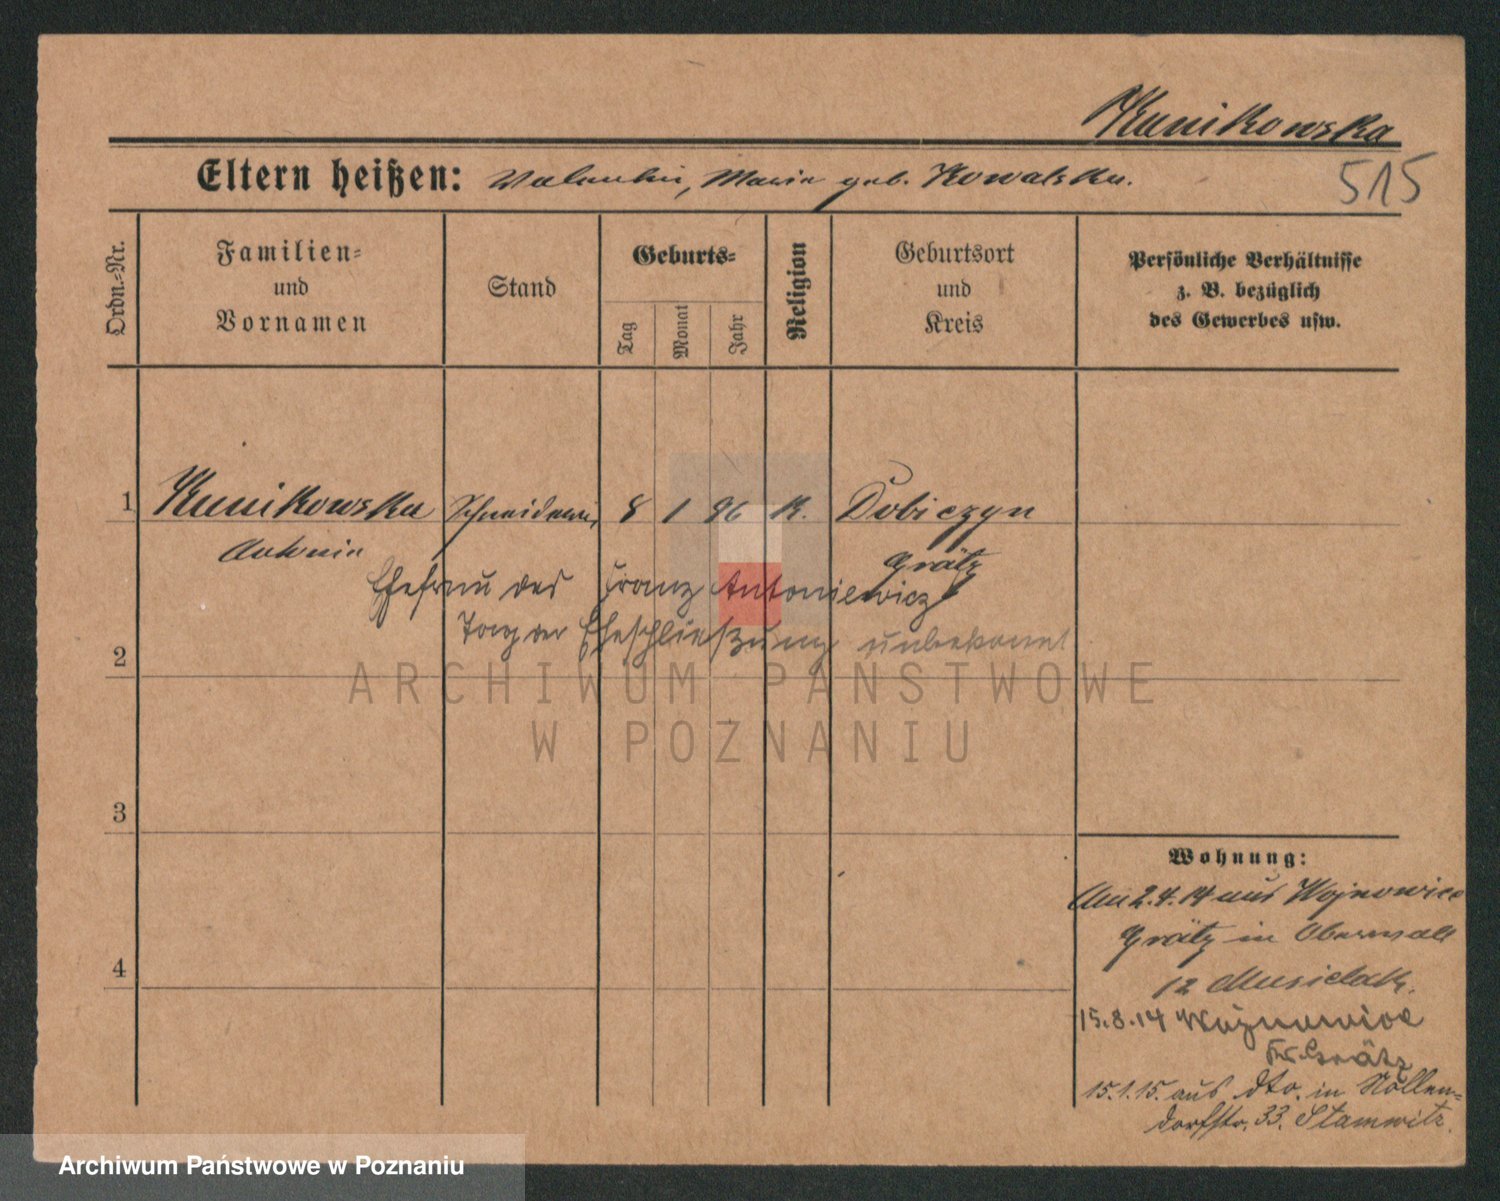 Kunikowska
Eltern heißen: Valentin, Maria geb. Kowalska.
515
Ordn.-Nr.
Familien-
und
Vornamen
Stand
Geburts-
Tag
Monat
Jahr
Religion
Geburtsort
und
Kreis
Persönliche Verhältnisse
z. B. bezüglich
des Gewerbes usw.
1 Kunikowska Schneiderin, 8 1 96 K. Dobiczyn
Antonia
Grätz
Ehefrau des Franz Antoniewicz
Tag der Eheschließung unbekannt
2
ARCHIWUM PAŃSTWOWE
W POZNANIU
3
4
Wohnung:
Am 2.4.14 aus Wojnowice
Grätz in Oberwall
12 Musielak.
15.8.14 Wojnowice
Kr. Grätz
15.1.15. aus dto. in Nollen-
dorfstr. 33. Stamwitz.
Archiwum Państwowe w Poznaniu